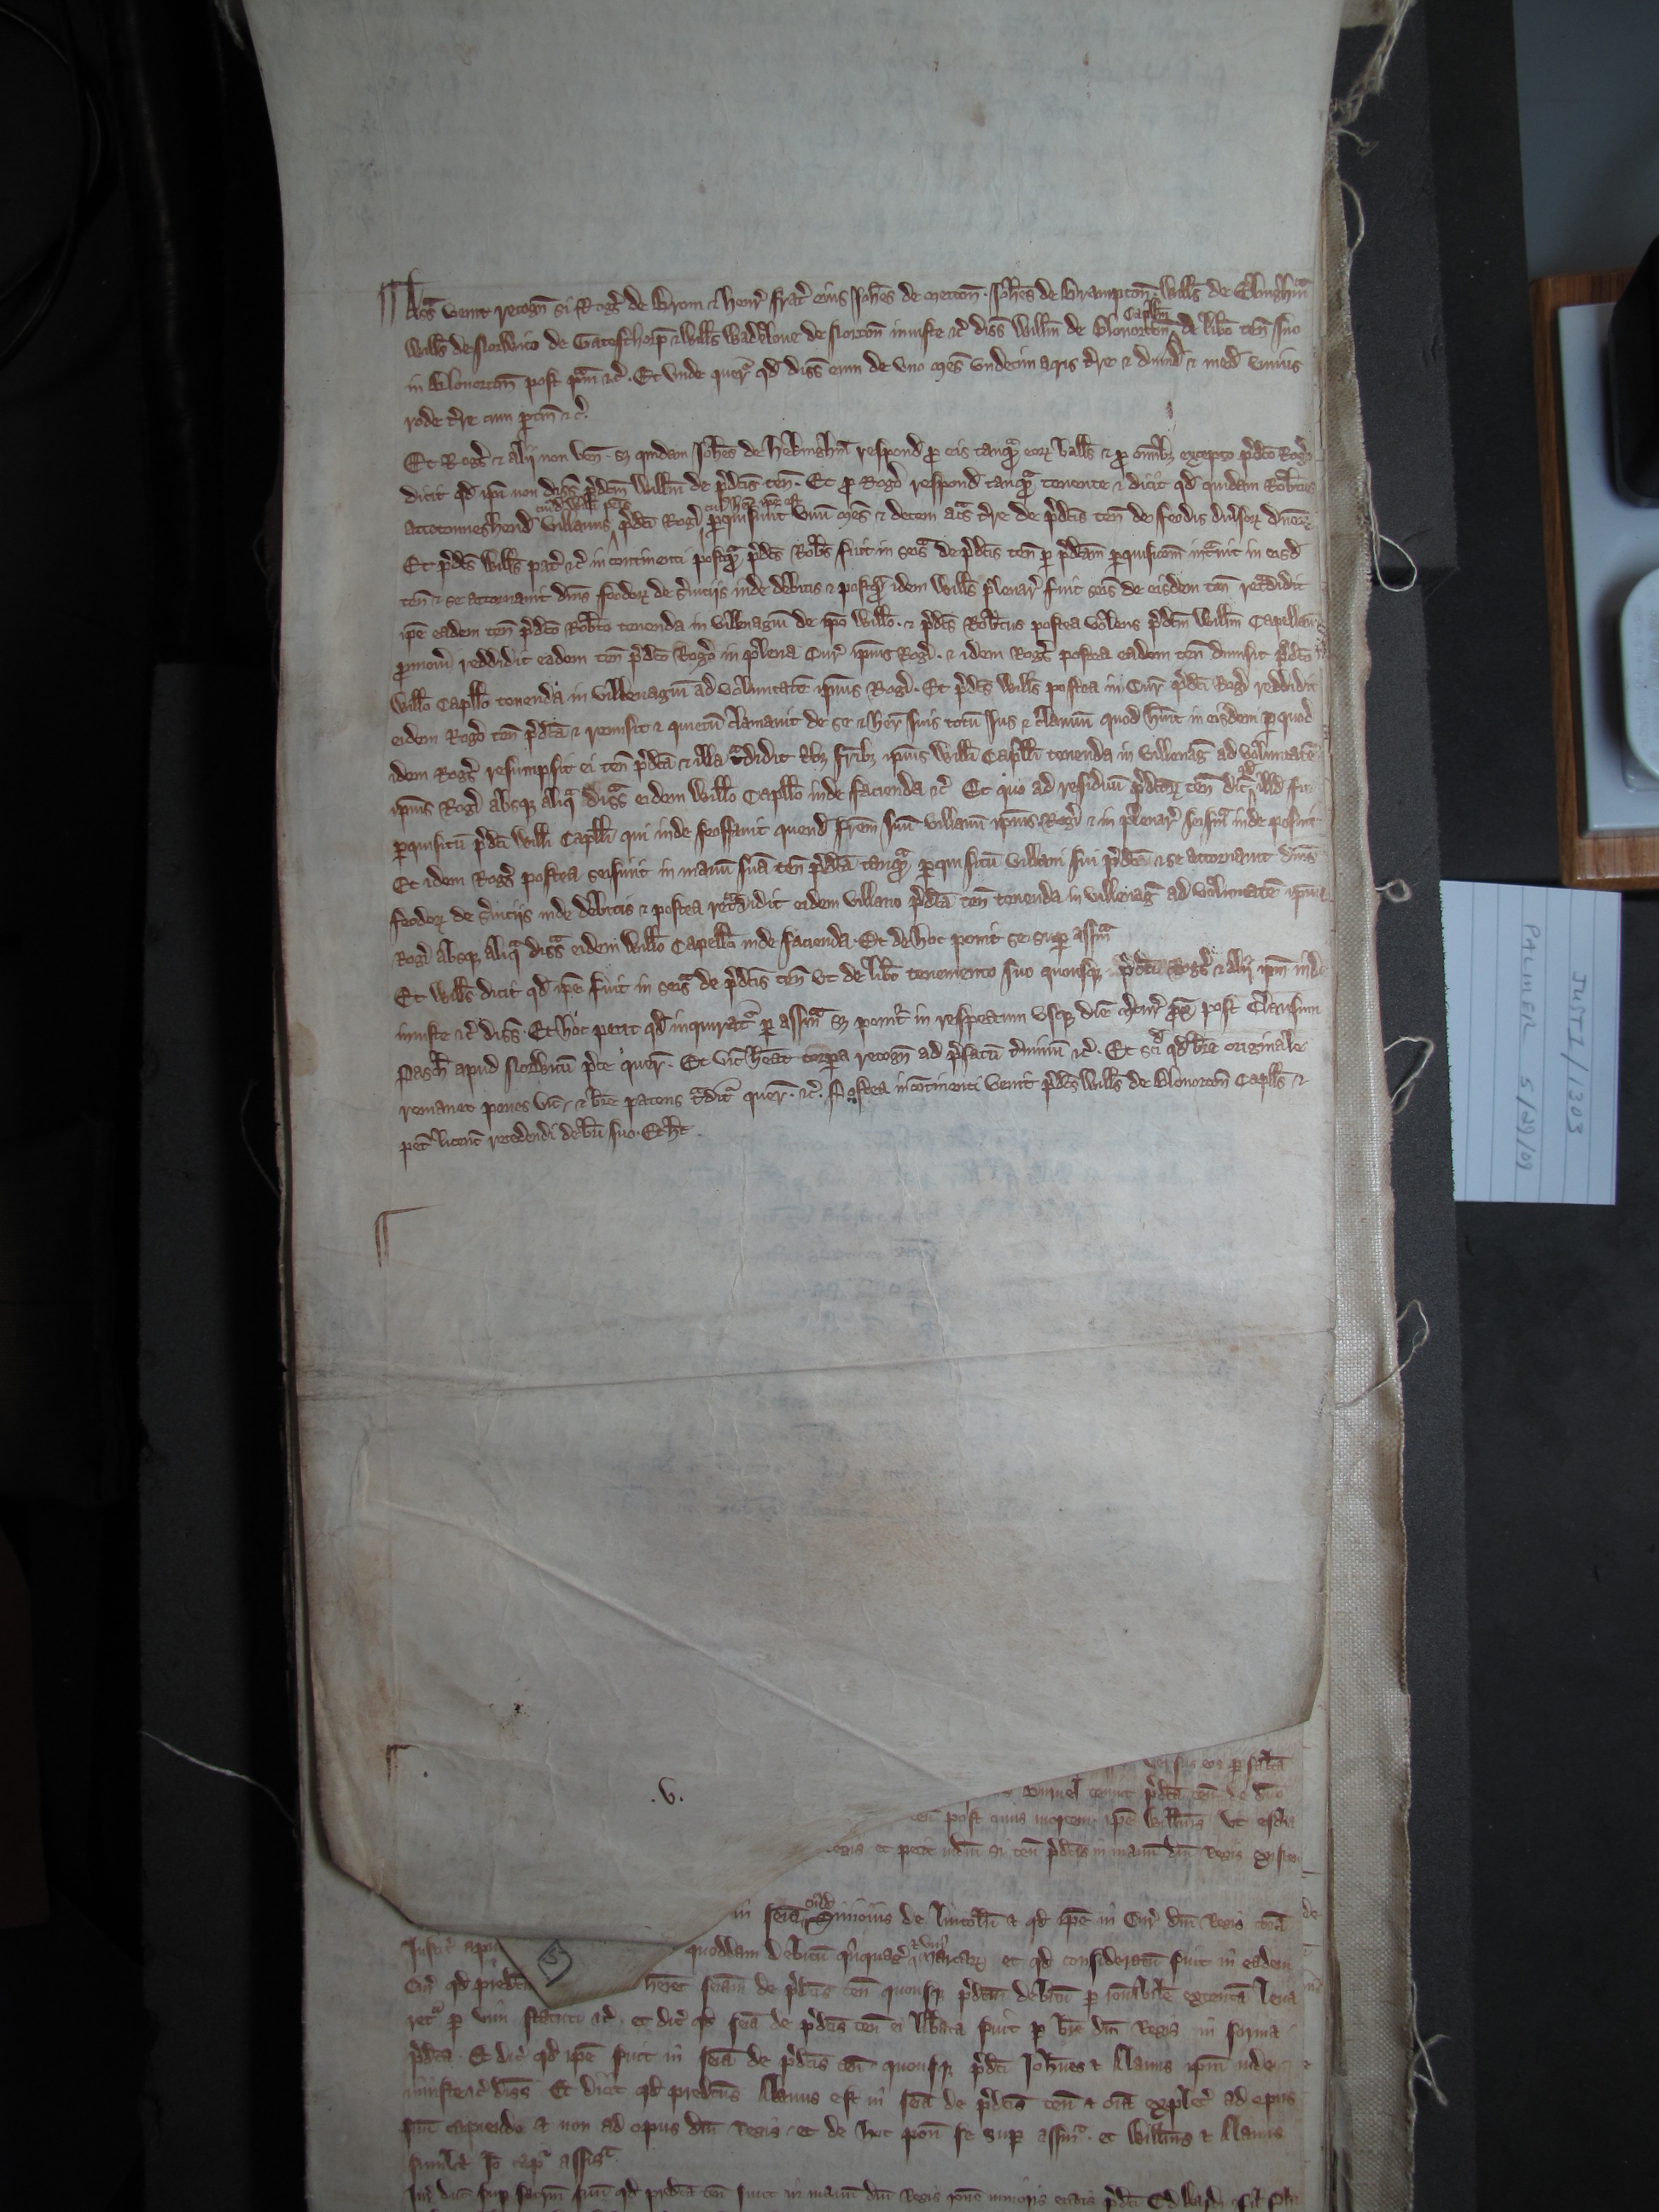 Ass̄ venit recogn̄ si Rog̃s de Brom ⁊ Henr̃ frat̃ eius Joħes de Metton̄ · Joħes de Brampton̄ · Willš de Elingham̄
Willš de Norwico de Gatesthorp̄ ⁊ Willš Wadelove de Norton̄ iniuste ⁊c̃ diss̄ Willm̄ de Blonorton̄ Capllm̄ de libō ten̄ suo
in Blonorton̄ post p̃m̄ ⁊c̃. Et unde quer̃ qd̃ diss̄ eum de uno mes̄ undecim acris t̃re ⁊ dimid̃ ⁊ med̃ unius
rode t̃re cum p̱tin̄ ⁊c̃.
Et Rog̃s ⁊ alij non ven̄ · sꝫ quidam Joħes de Hekingham̄ respond̃ p̱ eis tanq̃m eoꝝ ballš ⁊ p̱ om̄ibꝫ excepto p̃dc̃o Rog̃o
dicit qd̃ ip̄i non diss̄ p̃dc̃m Willm̄ de p̃dc̃is ten̄ · Et p̱ Rog̃o respond̃ tanq̃m tenente ⁊ dicit qd̃ quidam Rob̃tus
villanus p̃dc̃i Rog̃i p̱quisivit unū mes̄ ⁊ decem ac̃s t̃re de p̃dc̃is ten̄ de feodis diṽsoꝝ dn̄oꝝ
Et p̃dc̃s Willš pat̃ ⁊c̃ in continenti postq̃m p̃dc̃s Rob̃s fuit in seis̄ de p̃dc̃is ten̄ p̱ p̃dc̃am p̱quisic̄om int̃vit in eisd̃
ten̄ ⁊ se attornavit dn̄is feodoꝝ de s̃viciis inde debitis ⁊ postq̃m idem Willš plenar̃ fuit seis̄ de eisdem ten̄ ret̃didit
ip̄e eadem ten̄ p̃dc̃o Rob̃to tenenda in villenagiū de ip̄o Willo · ⁊ p̃dc̃s Rob̃tus postea volens p̃dc̃m Willm̄ Capellan̄
p̱mov̄e reddidit eadem ten̄ p̃dc̃o Rog̃o in plena Cur̃ ip̄ius Rog̃i · ⁊ idem Rog̃s postea eadem ten̄ dimisit p̃dc̃o
Willo Capllō tenenda in villenagiū ad voluntatē ip̄ius Rog̃i · Et p̃dc̃s Willš postea in Cur̃ p̃dc̃i Rog̃i reddidit
eidem Rog̃o ten̄ p̃dc̃a ⁊ remisit ⁊ quietū clamavit de se ⁊ her̃ suis totū ius ⁊ clamiū quod h̃uit in eisdem p̱ quod
idem Rog̃s resumpsit ei ten̄ p̃dc̃a ⁊ illa t̃didit fr̃ibꝫ ip̄ius Willi Capllī tenenda in villenag̃ ad voluntatē
ip̄ius Rog̃i absqꝫ aliq̃ diss̄a eidem Willo Capllō inde facienda ⁊c̃ Et quo ad residuū p̃dc̃oꝝ ten̄ dic̃ qd̃ illd̃
p̱quisitū p̃dc̃i Willi Capllī qui inde feoffavit quend̃ fr̃em suū villanū ip̄ius Rog̃i ⁊ in plenar̃ seisīa inde posuit
Et idem Rog̃s postea seisivit in manū suā ten̄ p̃dc̃a tanq̃m p̱quisitū villani sui p̃dc̃i ⁊ se attornavit dn̄is
feodoꝝ de s̃viciis inde debitis ⁊ postea ret̃didit eidem villano p̃dc̃a ten̄ tenenda in villenag̃ ad voluntatē ip̄ius
Rog̃i absqꝫ aliq̃ diss̄a eidem Willo Capellō inde facienda · Et de hoc ponit se sup̱ assīam
Et Willš dicit qd̃ ip̄e fuit in seis̄a de p̃dc̃is ten̄ ut de libō tenemento suo quousqꝫ p̃dc̃us Rog̃s ⁊ alij ip̄m inde
iniuste ⁊c̃ diss̄ · Et hoc petit qd̃ inquirat̃ p̱ assīam sꝫ ponit̃ in respectum usqꝫ diē p̱x̄ post Clausum
Pasch̃ apud Norwicū p̃ce quer̃ · Et vic̃ h̃eat corpora recogn̄ ad p̃fatū t̃minū ⁊c̃ · Et sc̄id̃ qd̃ br̄e originale
remanet penes vic̃ · ⁊ br̄e patens t̃dit̃ quer̃ · ⁊c̃ · Postea incontinenti venit p̃dc̃s Willš de Blonorton̄ Capllš ⁊
pet̃ licenc̃ recedendi de br̄i suo · Et h̃t ·
.v.
versus eos p̱
tenuit p̃dc̃a ten̄ de dn̄o
ten̄ post cuius mortem ip̄e Willm̄s ut
Regis et petit iudm̄ si ten̄ p̃dc̃is in manū dn̄i Regis existen
in seis̄a Simonis de Lincoln̄ ⁊ qd̃ ip̄e in Cur̃ dn̄i Regis cora
Justic̃ apu quoddam debitū quinquag̃ ⁊ viij marcaꝝ et qd̃ consideratū fuit in eadem
Cur̃ qd̃ predc̃ heret seis̄am de p̃dc̃is ten̄ quousqꝫ p̃dc̃m debitū p̱ rōnabilē extentā leva
ret̃ p̱ vim statuti ⁊c̃ · et dic̃ qd̃ seis̄a de p̃dc̃is ten̄ ei lib̃ata fuit p̱ br̄e dn̄i Regis in forma
p̃dc̃a · Et dic̃ qd̃ ip̄e fuit in seis̄a de p̃dc̃is ten̄ quousqꝫ p̃dc̃i Joħnes ⁊ Alanus ip̄m inde
iniuste ⁊c̃ diss̄ Et dicit qd̃ predc̃us Alanus est in seis̄a de p̃dc̃is ten̄ ⁊ om̄ia explec̃ ad opus
suū capiendo ⁊ non ad opus dn̄i Regis · et de hoc pon̄ se sup̱ assīam · et Willm̄s ⁊ Alanus
simil̃r Jō cap̃ assīa
Jur̃ dic̃t sup̱ sac̃m suū qd̃ predc̃a ten̄ sunt in manū dn̄i Regis rōne minoris etatis p̃dc̃i Edwardi
JUST 1/1303
PALMER 5/29/09